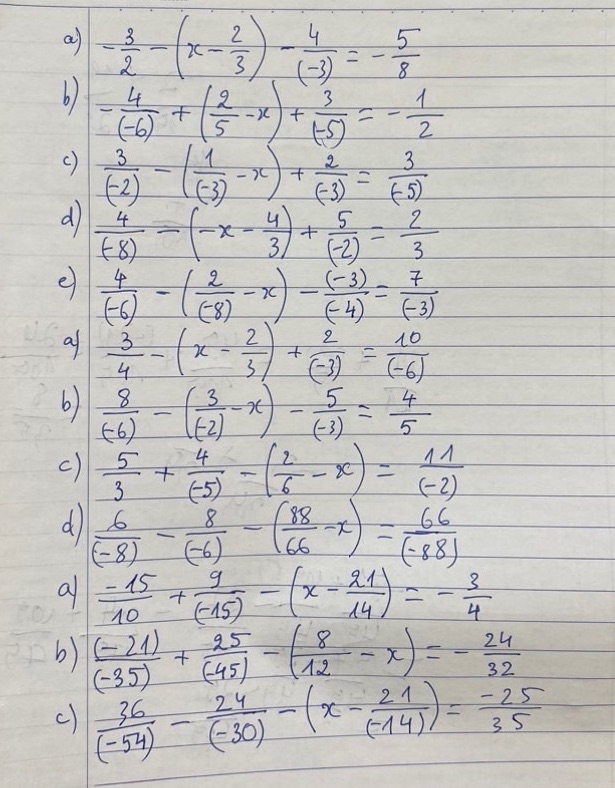 a) -3/2 - (x - 2/3) - 4/(-3) = -5/8
b) -4/(-6) + (2/5 - x) + 3/(-5) = -1/2
c) 3/(-2) - (1/(-3) - x) + 2/(-3) = 3/(-5)
d) 4/(-8) - (-x - 4/3) + 5/(-2) = 2/3
e) 4/(-6) - (2/(-8) - x) - (-3)/(-4) = 7/(-3)
a) 3/4 - (x - 2/3) + 2/(-3) = 10/(-6)
b) 8/(-6) - (3/(-2) - x) - 5/(-3) = 4/5
c) 5/3 + 4/(-5) - (2/6 - x) = 11/(-2)
d) 6/(-8) - 8/(-6) - (88/66 - x) = 66/(-88)
a) -15/10 + 9/(-15) - (x - 21/14) = -3/4
b) (-21)/(-35) + 25/(-45) - (8/12 - x) = -24/32
c) 36/(-54) - 24/(-30) - (x - 21/(-14)) = -25/35